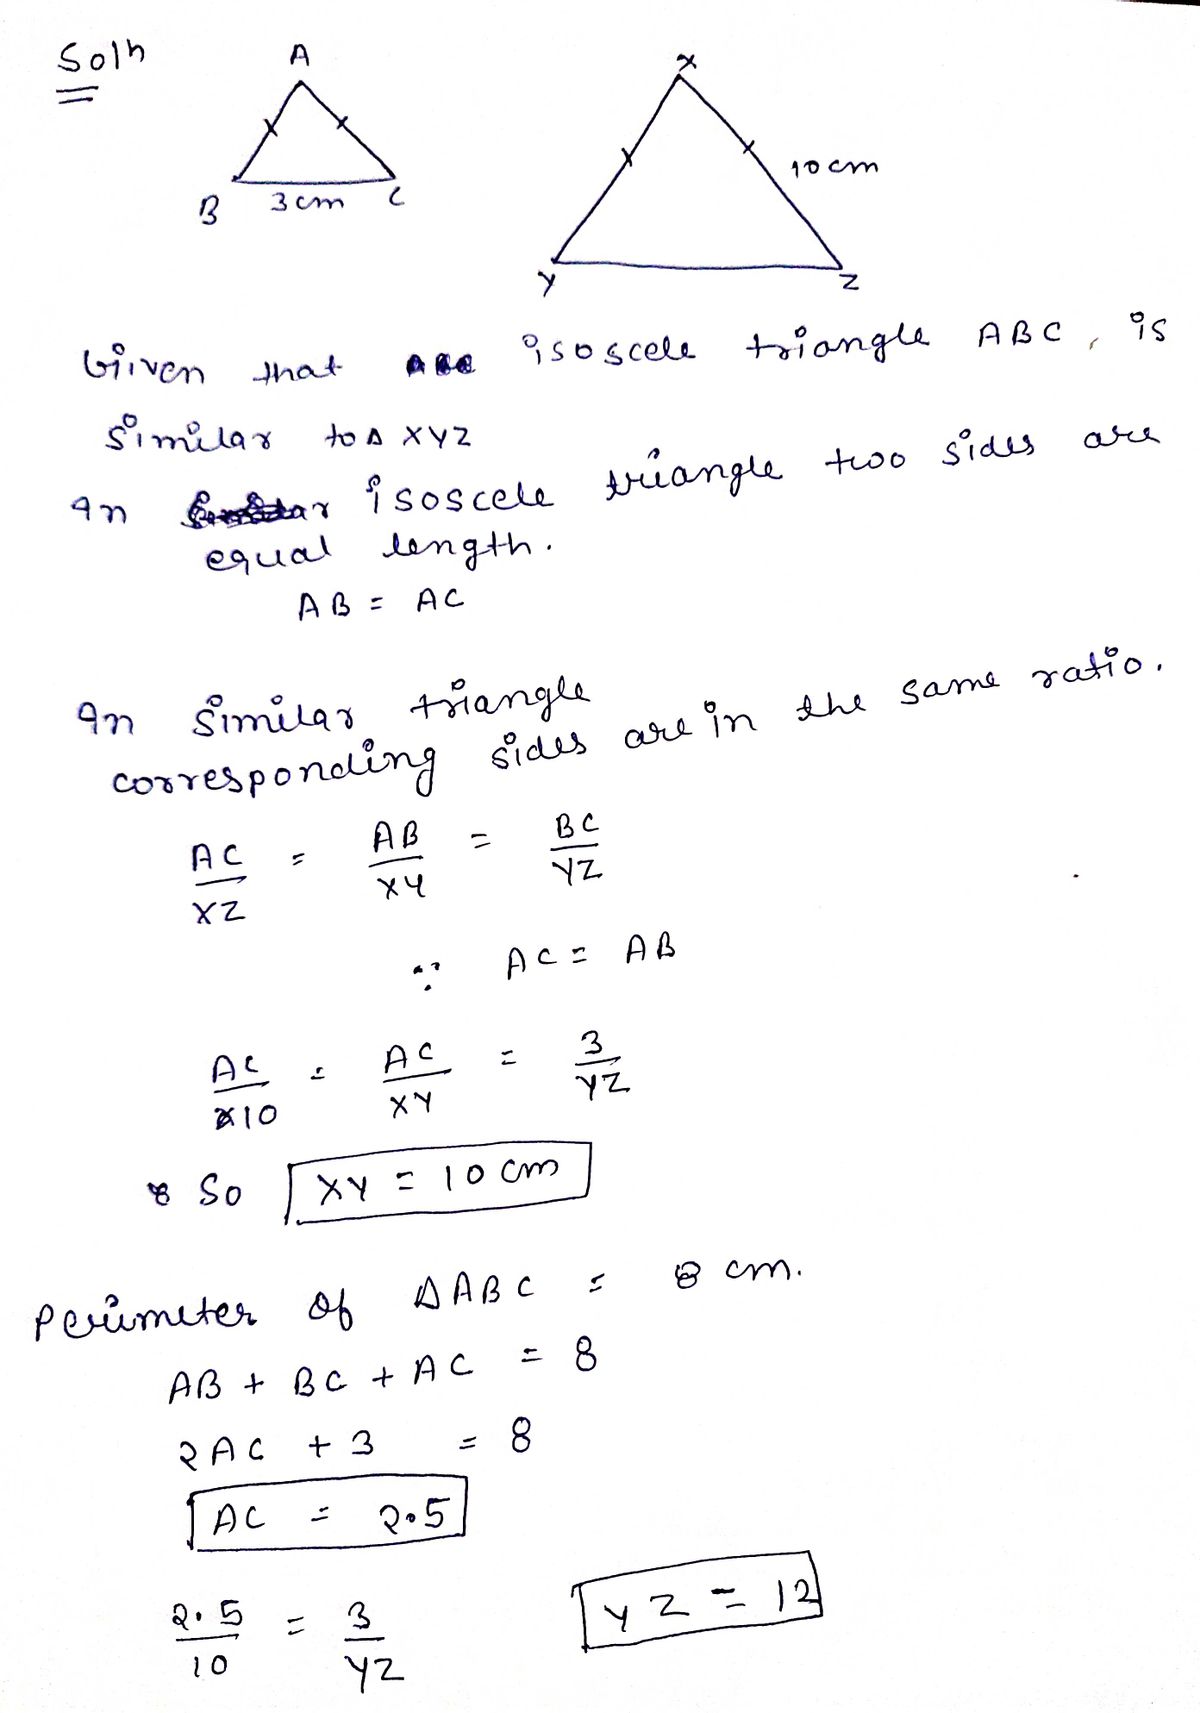 Soln
A
X
10 cm
B 3 cm C
Y Z
Given that isoscele triangle ABC, is
similar to Δ XYZ
In isoscele triangle two sides are
equal length.
AB = AC
In similar triangle
corresponding sides are in the same ratio.
AC/XZ = AB/XY = BC/YZ
∵ AC = AB
AC/10 = AC/XY = 3/YZ
So XY = 10 cm
Perimeter of ΔABC = 8 cm.
AB + BC + AC = 8
2AC + 3 = 8
AC = 2.5
2.5/10 = 3/YZ YZ = 12